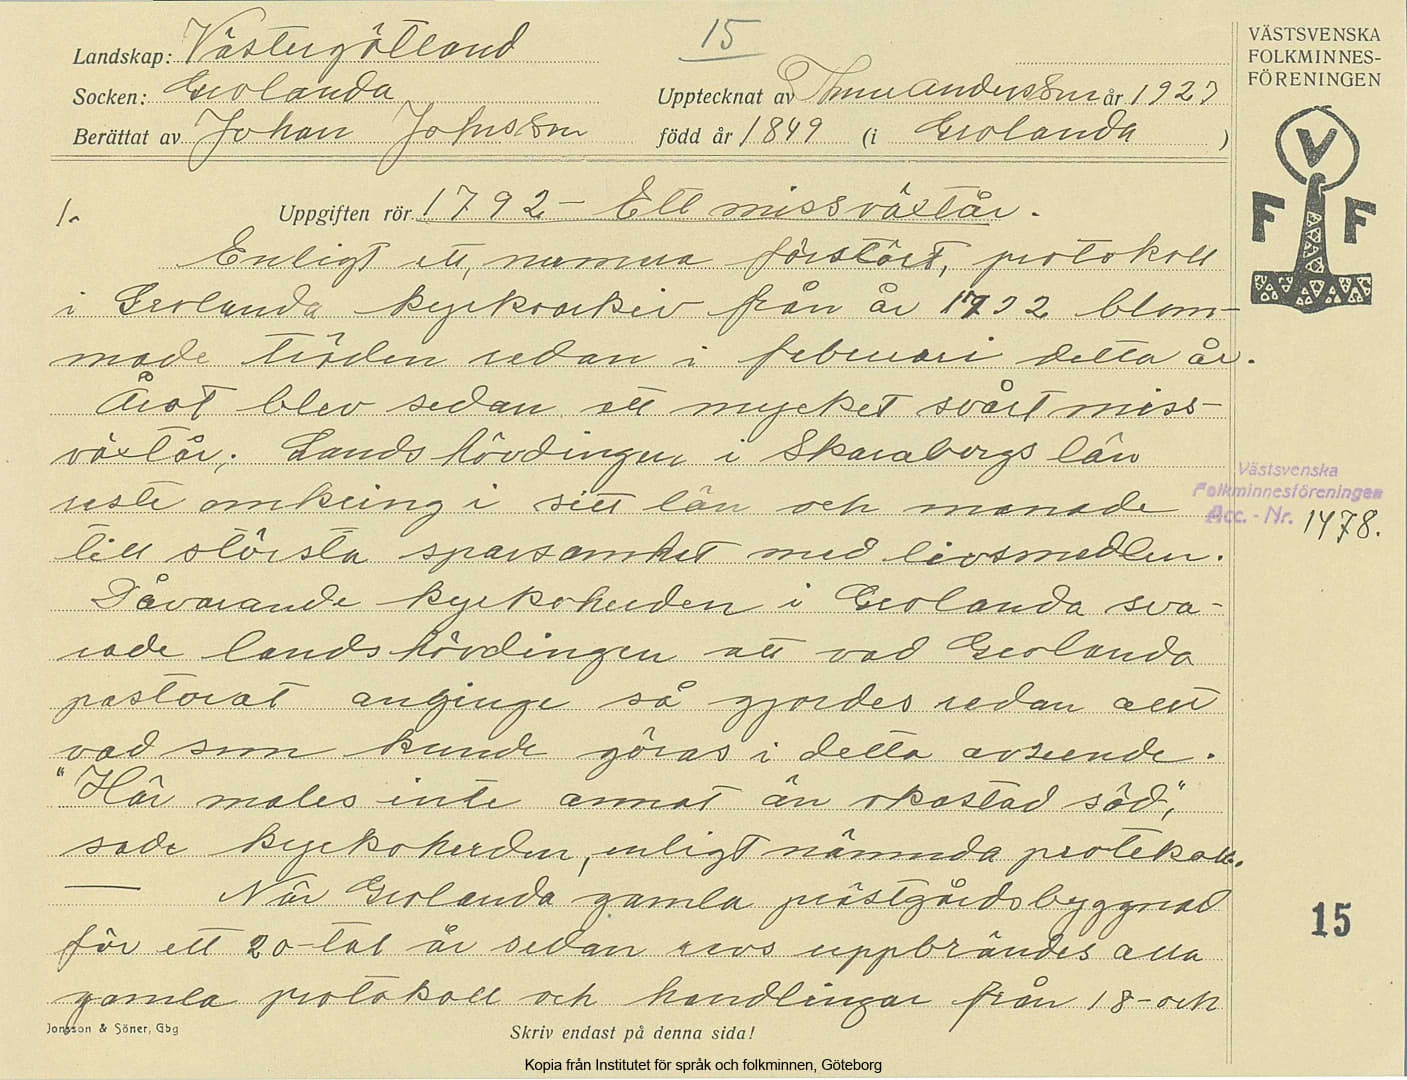 15
Landskap: Västergötland
Socken: Grolanda
Upptecknat av Thure Andersson år 1927
Berättat av Johan Johansson född år 1849 (i Grolanda )
VÄSTSVENSKA
FOLKMINNES-
FÖRENINGEN
V
F F
1.
Uppgiften rör 1792 - Ett missväxtår.
Enligt ett, numera förstört, protokoll
i Grolanda kyrkoarkiv från år 1792 blom-
made träden redan i februari detta år.
Året blev sedan ett mycket svårt miss-
växtår. Landshövdingen i Skaraborgs län
reste omkring i sitt län och manade
till största sparsamhet med livsmedlen.
Dåvarande kyrkoherden i Grolanda sva-
rade landshövdingen att vad Grolanda
pastorat anginge så gjordes redan allt
vad som kunde göras i detta avseende.
"Här males inte annat än okastad säd",
sade kyrkoherden, enligt nämnda protokoll.
— När Grolanda gamla prästgårdsbyggnad
för ett 20-tal år sedan revs uppbrändes alla
gamla protokoll och handlingar från 18- och
Västsvenska
Folkminnesföreningen
Acc. - Nr. 1478.
15
Jonsson & Söner, Gbg
Skriv endast på denna sida!
Kopia från Institutet för språk och folkminnen, Göteborg